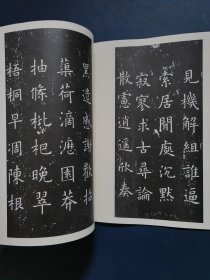 見機解組誰逼
索居閒處沉默
寂寥求古尋論
散慮逍遙欣奏
累遣慼謝歡招
渠荷滴瀝園莽
抽條枇杷晚翠
梧桐早凋陳根